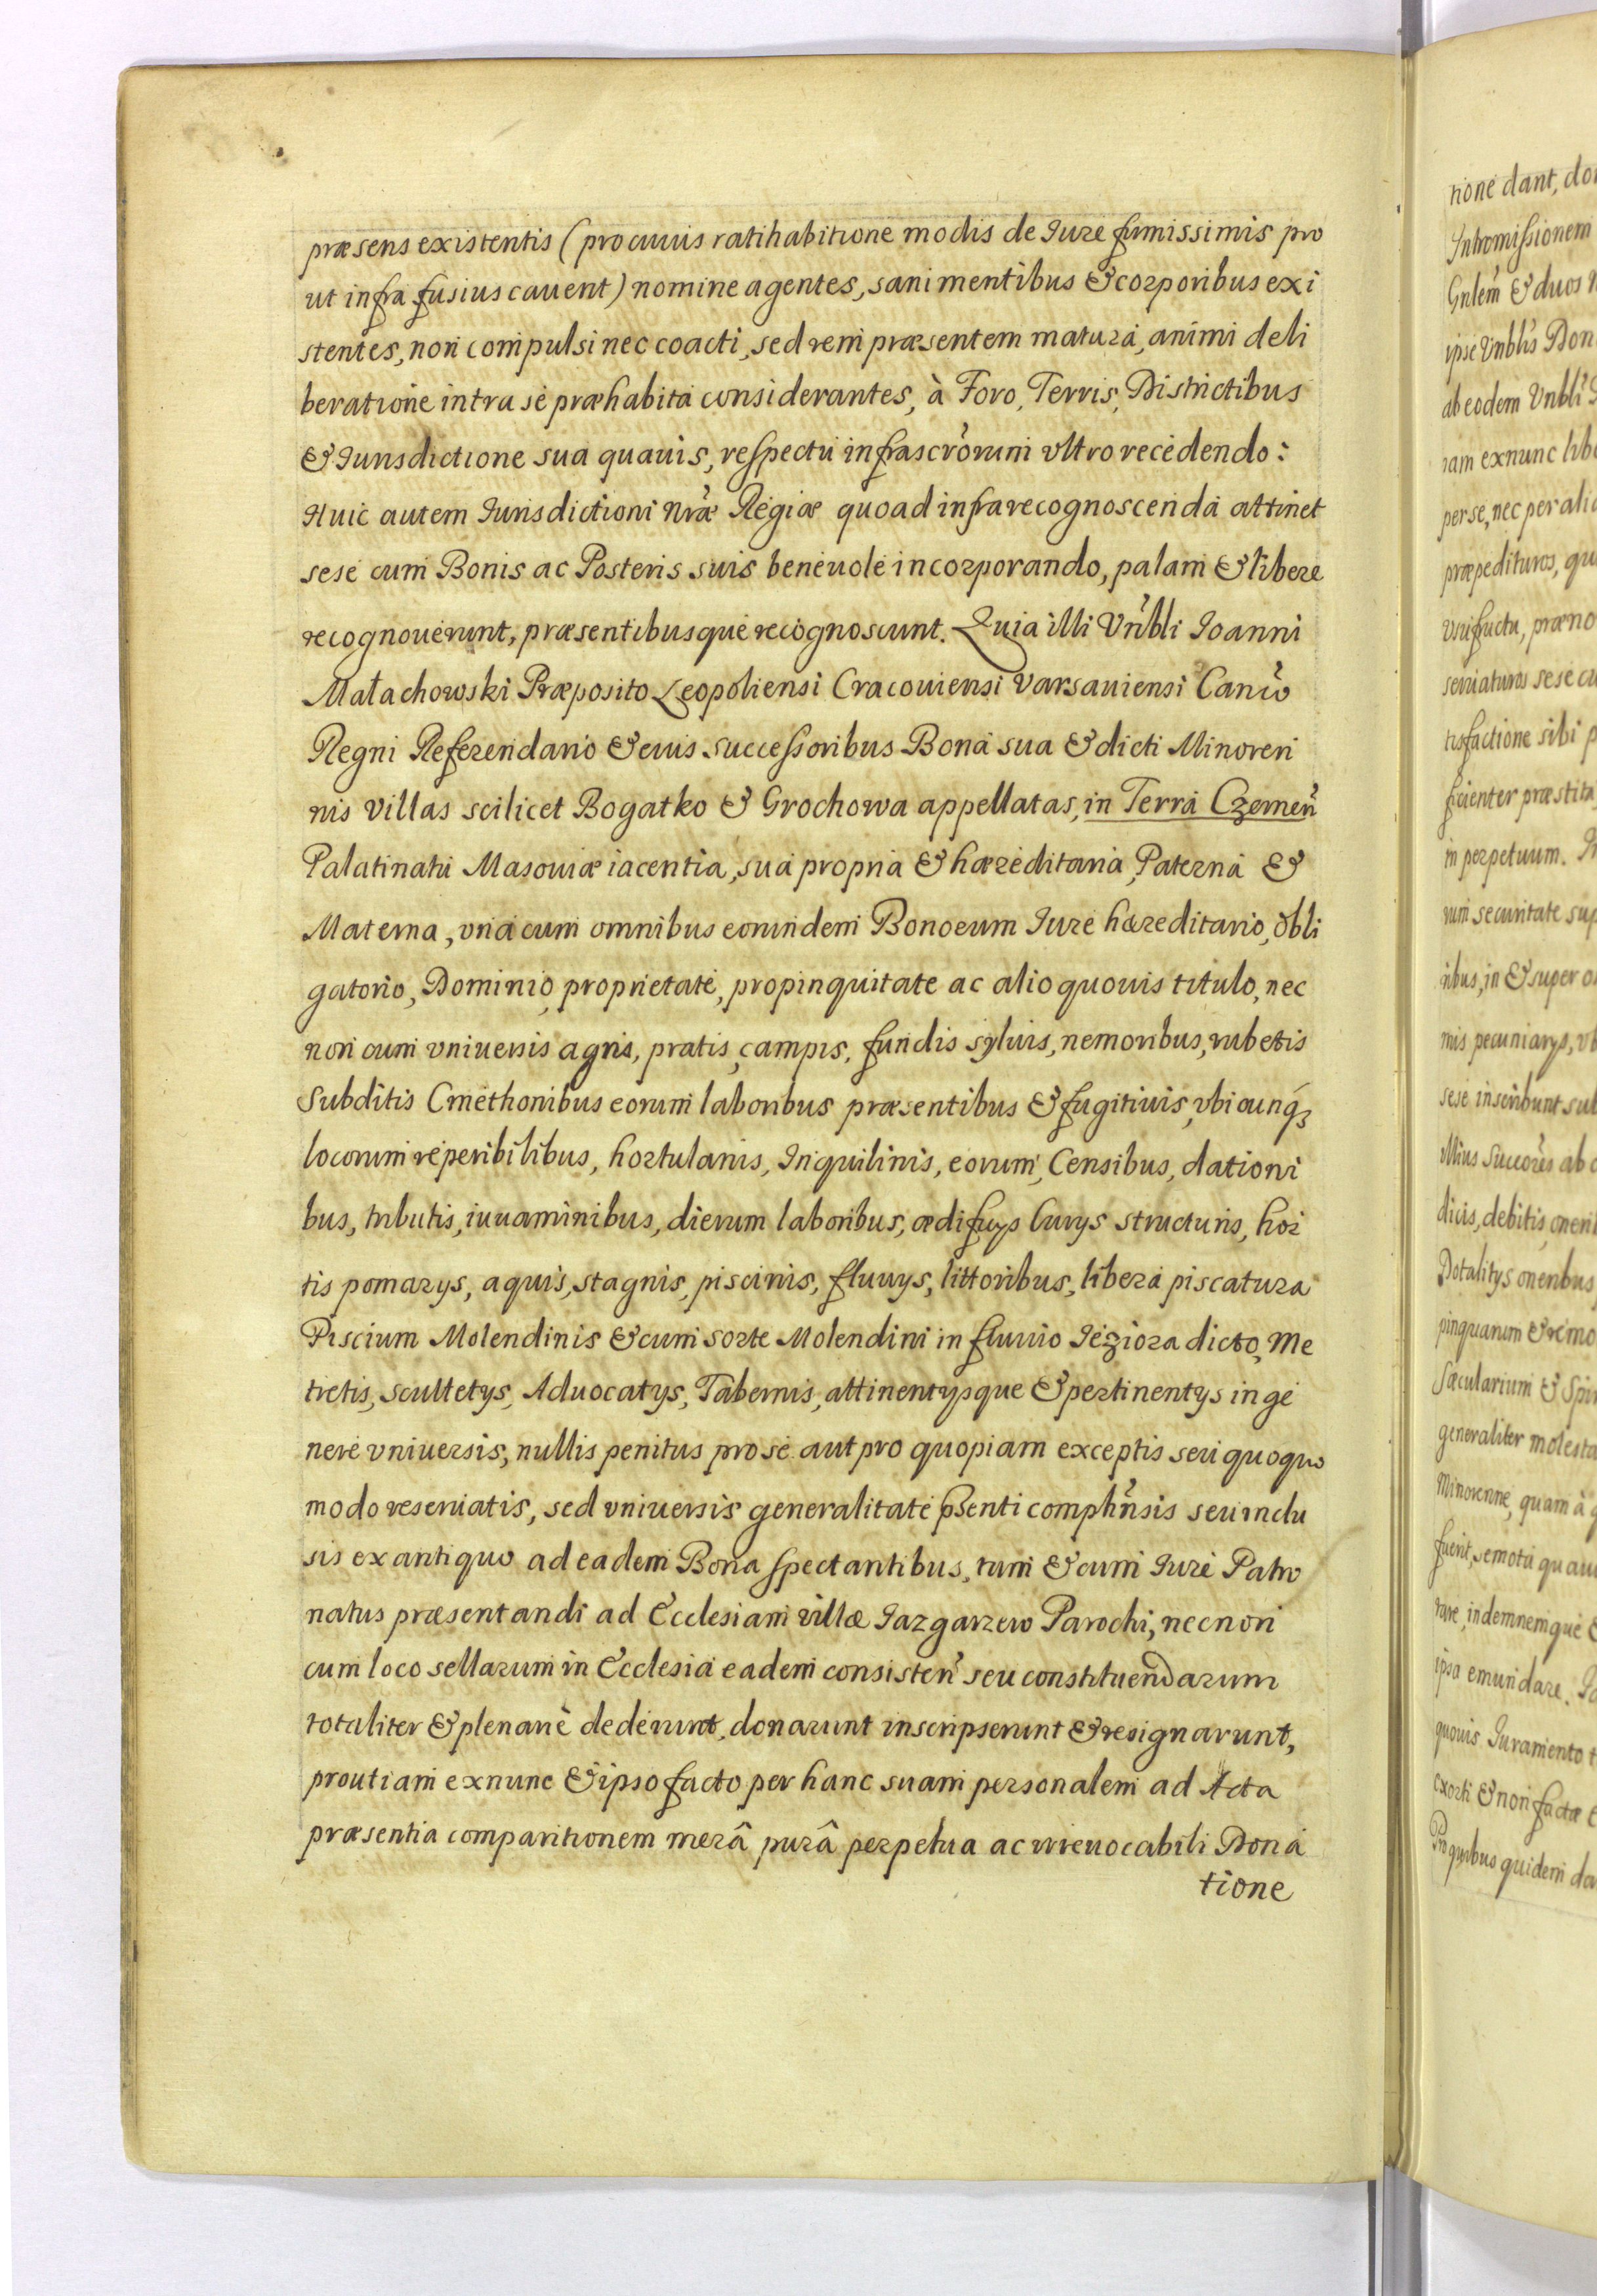 præsens existentis (pro cuius ratihabitione modis de Iure firmissimis pro
ut infra fusius cauent) nomine agentes, sani mentibus & corporibus exi
stentes, non compulsi nec coacti, sed rem præsentem matura, animi deli
beratione intra se præhabita considerantes, à Foro, Terris, Districtibus
& Iurisdictione sua quauis, respectu infrascrorum vltro recedendo:
Huic autem Iurisdictioni nræ Regiæ quoad infra recognoscenda attinet
sese cum Bonis ac Posteris suis beneuole incorporando, palam & libere
recognouerunt, præsentibusque recognoscunt. Quia illi Vrbli Ioanni
Małachowski Præposito Leopoliensi Cracouiensi Varsauiensi Canco
Regni Referendario & eius successoribus Bona sua & dicti Minoren
nis villas scilicet Bogatko & Grochowa appellatas, in Terra Czernen
Palatinatu Masouiæ iacentia, sua propria & hæreditaria, Paterna &
Materna, vna cum omnibus eorundem Bonoeum Iure hæreditario, obli
gatorio, Dominio, proprietate, propinquitate ac alio quouis titulo, nec
non cum vniuersis agris, pratis, campis, fundis syluis, nemoribus, rubetis
Subditis Cmethonibus eorum laboribus præsentibus & fugitiuis, vbicunq3
locorum reperibilibus, hortulanis, Inquilinis, eorum, Censibus, dationi
bus, tributis, iuuaminibus, dierum laboribus, ædificys Curys structuris, hor
tis pomarys, aquis, stagnis, piscinis, fluuys, littoribus, libera piscatura
Piscium Molendinis & cum sorte Molendini in fluuio Ieziora dicto, Me
tretis, scultetys, Aduocatys, Tabernis, attinentysque & pertinentys in ge
nere vniuersis, nullis penitus pro se aut pro quopiam exceptis seu quoquo
modo reseruatis, sed vniuersis generalitate psenti comphnsis seu inclu
sis ex antiquo ad eadem Bona spectantibus, tum & cum Iure Patro
natus præsentandi ad Ecclesiam villæ Iazgarzew Parochi, necnon
cum loco sellarum in Ecclesia eadem consisten seu constituendarum
totaliter & plenariè dederunt, donarunt inscripserunt & resignarunt,
prout iam exnunc & ipso facto per hanc suam personalem ad Acta
præsentia comparitionem merâ purâ perpetua ac irreuocabili Dona
tione
tione dant, do
Intromissionem
Gnlem & duos
ipse Vnblis Don
ab eodem Vnbli
iam exnunc lib
per se, nec per ali
præpedituros, qu
vsufructu, præno
seruaturos sese cu
tisfactione sibi p
ficienter præstita
in perpetuum. In
rum securitate sup
ribus, in & super o
mis pecuniarys, vb
sese inscribunt sub
illius Succores ab o
dicis, debitis, oneri
Dotalitys oneribus
pinquarum & remo
Sæcularium & Spir
generaliter molesta
Minorenne, quam à q
fuerit, semota quaui
rare, indemnemque &
ipsa emundare. Io
quouis Iuramento t
exorti & non factæ
Pro quibus quidem do